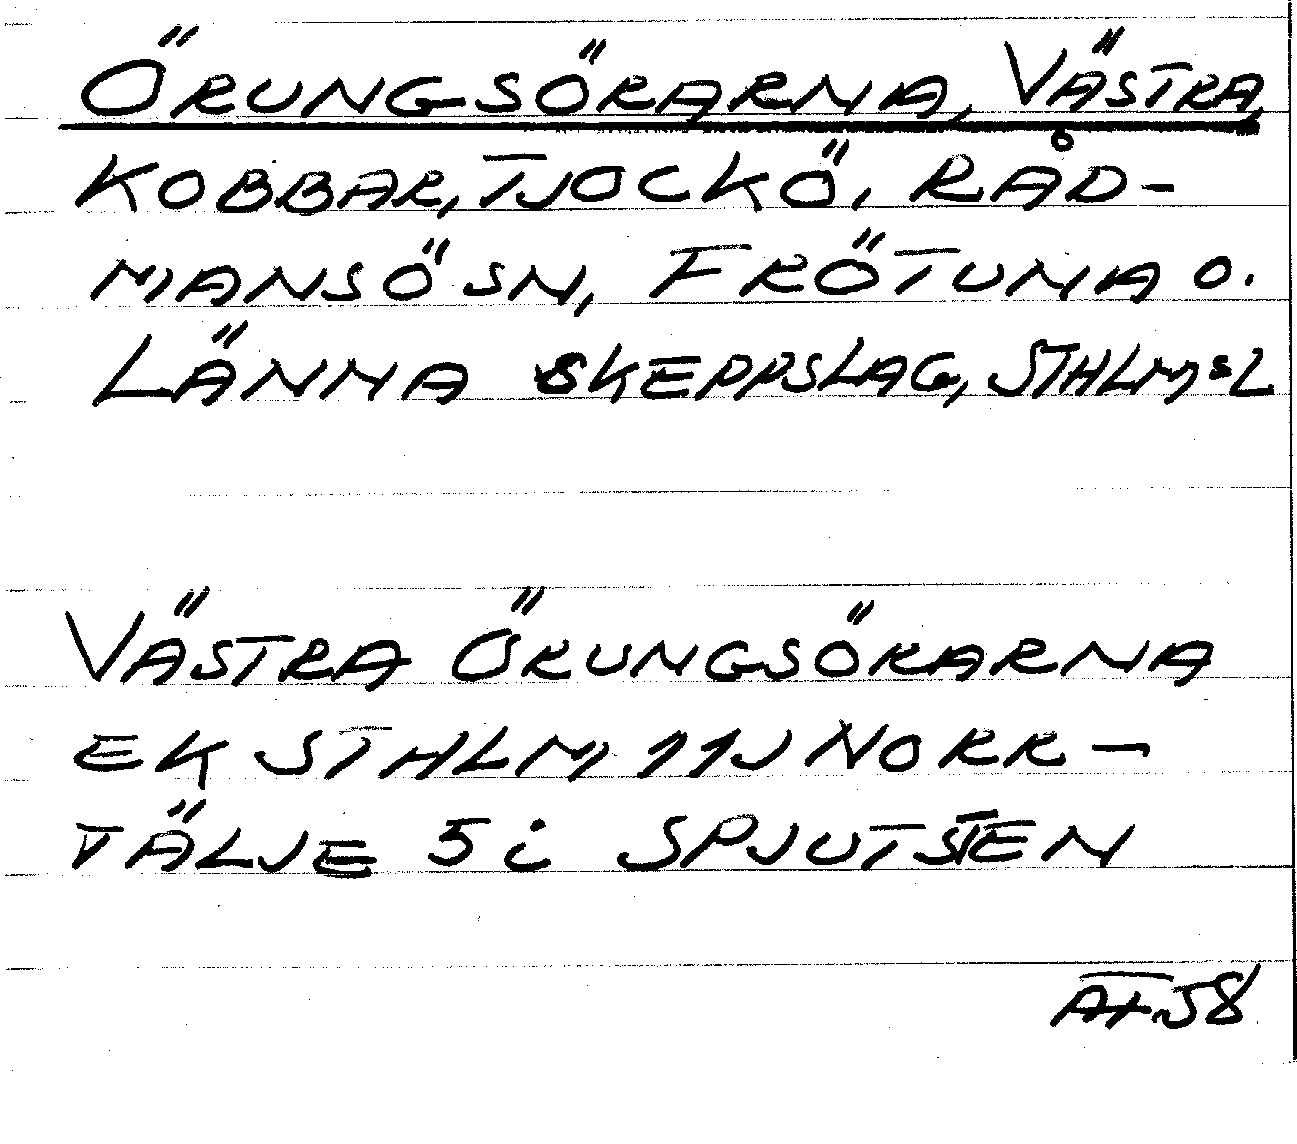 ÖRUNGSÖRARNA, VÄSTRA
KOBBAR, TJOCKÖ, RÅD-
MANSÖ SN, FRÖTUNA O.
LÄNNA SKEPPSLAG, STHLMSL
VÄSTRA ÖRUNGSÖRARNA
EK STHLM 11J NORR-
TÄLJE 5i SPJUTSTEN
AT-58